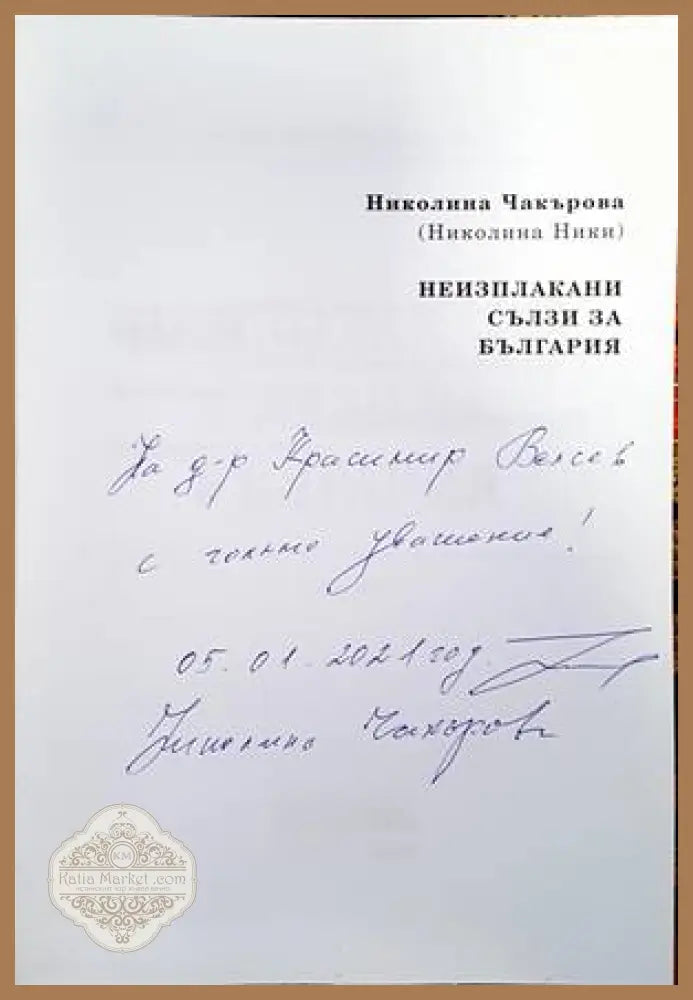 Николина Чакърова
(Николина Ники)
НЕИЗПЛАКАНИ
СЪЛЗИ ЗА
БЪЛГАРИЯ
На д-р Красимир
с голямо уважение!
05.01.2021 год.
Николина Чакърова
KM
Katia Market .com